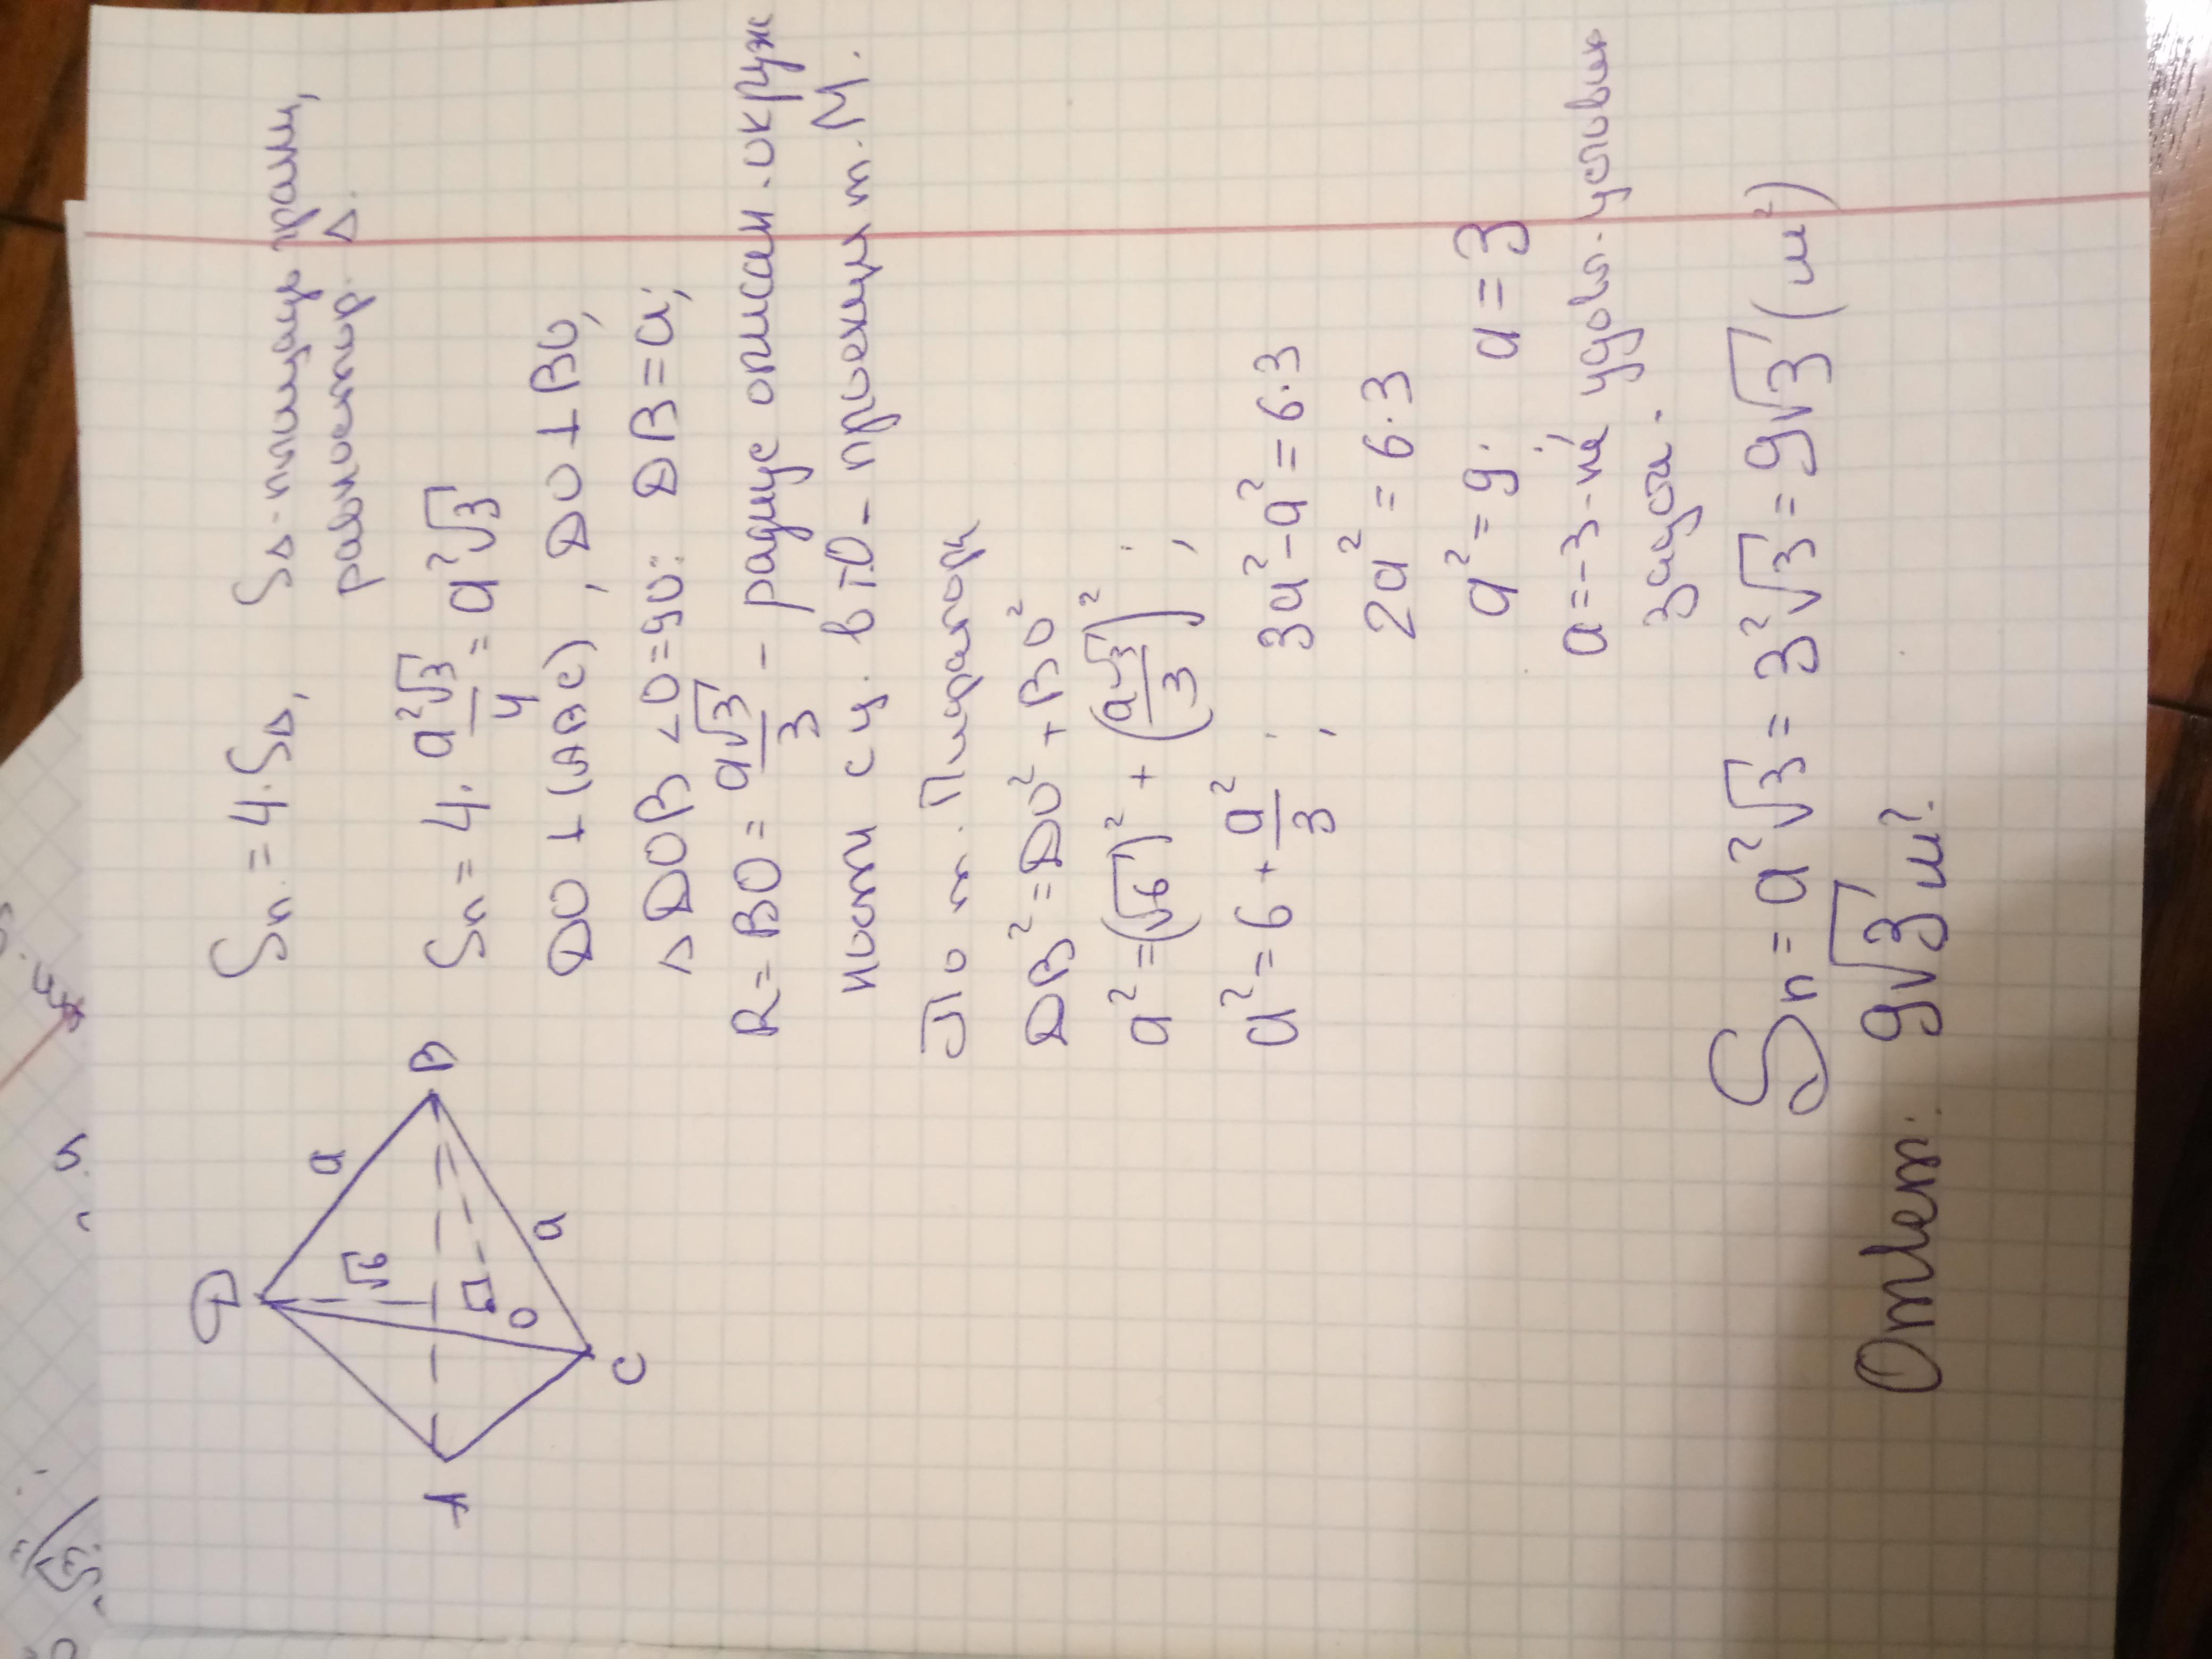 D
a
√6
A
B
O
a
C
Sп = 4·S△, S△-площадь грани,
равностор. △.
Sп = 4·a²√3/4 = a²√3
DO⊥(ABC), DO⊥BO,
△DOB ∠O=90°. DB=a;
R=BO= a√3/3 - радиус описан. окруж
ности с ц. в т.О - проекции т. М.
По т. Пифагора
DB²=DO²+BO²
a²=(√6)²+(a√3/3)²;
a²=6+a²/3; 3a²-a²=6·3
2a²=6·3
a²=9; a=3
a=-3-не удовл. условия
задачи.
Sп=a²√3=3²√3=9√3 (м²)
Ответ: 9√3 м².